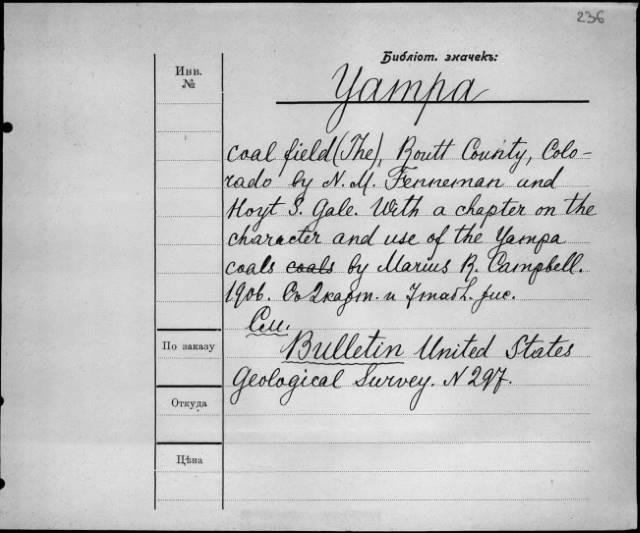 236
Библіот. значекъ:
Инв.
№
Yampa
coal field (The), Routt County, Colo-
rado by N. M. Fenneman und
Hoyt S. Gale. With a chapter on the
character and use of the Yampa
coals coals by Marius R. Campbell.
1906. Съ 2 карт. и 7 табл. рис.
См.
Bulletin United States
Geological Survey. N 297.
По заказу
Откуда
Цѣна